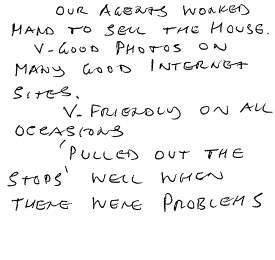 OUR AGENTS WORKED
HARD TO SELL THE HOUSE.
V-GOOD PHOTOS ON
MANY GOOD INTERNET
SITES.
V. FRIENDLY ON ALL
OCCASIONS
'PULLED OUT THE
STOPS' WELL WHEN
THERE WERE PROBLEMS